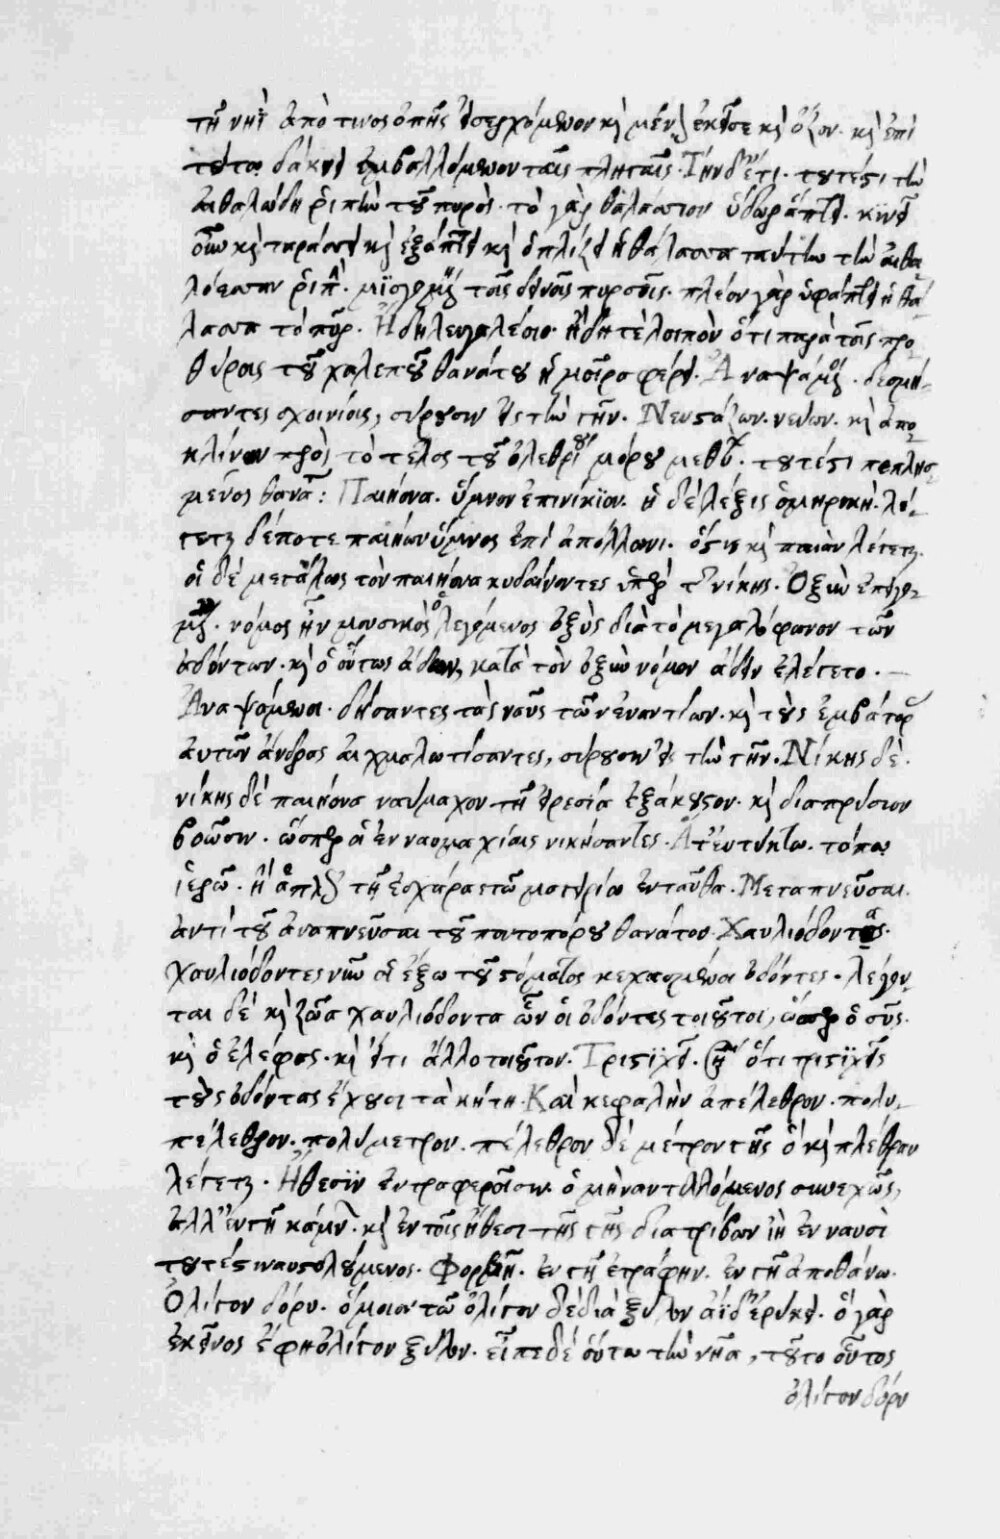 τῆ νηῒ ἀπό τινος ὀπῆς εἰσερχόμενον κὶ μένει ἐκεῖσε κὶ ὄζον. κὶ ἐπὶ
τούτω δάκνει ἐμβαλλόμενον ταῖς πληγαῖς. Τὴν δ' ἔτι. τουτέστι τὴν
αἰθαλώδη ῥιπὴν τοῦ πυρός. τὸ γὰρ θαλάσσιον ὕδωρ ἅπτει. κινεῖ
οὖν κὶ ταράσσει κὶ ἐξάπτει κὶ ὁπλίζει ἡ θάλασσα ταύτην τὴν αἰθα
λόεσσαν ῥιπήν. μισγομένη ταῖς πυρσοῖς. πλέον γὰρ ὑφάπτει ἡ θά
λασσα τὸ πῦρ. Ἢ δηλευγαλέοιο. ἤδη τὸ λοιπὸν ὅτι παρὰ ταῖς προ
θύραις τοῦ χαλεποῦ θανάτου ἡ μοῖρα φέρει. Ἀναψάμενοι. δεσμή-
σαντες σχοινίοις, σύρουσιν εἰς τὴν γῆν. Νευστάζων. νεύων. κὶ ἀπο
κλίνων πρὸς τὸ τέλος τοῦ ὀλεθρίου μόρου μεθύων. τουτέστι πεπλησ
μένος θανάτου: Παιήονα. ὕμνον ἐπινίκιον. ἡ δὲ λέξις ὁμηρική. λέ-
γεται δέποτε παιήων ὕμνος ἐπὶ ἀπόλλωνι. ὅστις κὶ παιὰν λέγεται.
οἱ δὲ μεγάλως τὸν παιήονα κυδαίνοντες ὑπὲρ τῆς νίκης. Ὀξὺν ἐπειγο-
μένοι. νόμος ἦν μουσικὸς ὁ λεγόμενος ὀξὺς διὰ τὸ μεγαλόφωνον τῶν
ᾀδόντων. κὶ ὁ οὕτως ᾄδων, κατὰ τὸν ὀξὺν νόμον ᾄδειν ἐλέγετο. —
Ἀναψάμενοι. δήσαντες τὰς ναῦς τῶν ἐναντίων. κὶ τοὺς ἐμβάτορας
αὐτῶν ἄνδρας αἰχμαλωτίσαντες, σύρουσιν εἰς τὴν γῆν. Νίκης δὲ.
νίκης δὲ παιήονα ναύμαχον τῇ εἰρεσίᾳ ἐξάκουστον. κὶ διαπρύσιον
βοῶσιν. ὥσπερ οἱ ἐν ναυμαχίαις νικήσαντες. Ἀγευστήτω. τόπω
ἱερῷ. ἢ ἁπλῶς τῇ ἐσχάρα τῶν μαγειρίων ἐνταῦθα. Μεταπνεῦσαι.
ἀντὶ τοῦ ἀναπνεῦσαι τοῦ ποντοπόρου θανάτου. Χαυλιόδοντας.
χαυλιόδοντες νῦν οἱ ἔξω τοῦ στόματος κεχασμένοι ὀδόντες. λέγον-
ται δὲ κὶ ζῷα χαυλιόδοντα ὧν οἱ ὀδόντες τοιοῦτοι, ὥσπερ ὁ σῦς.
κὶ ὁ ἐλέφας. κὶ εἴ τι ἄλλο τοιοῦτον. Τριστιχεῖ. ὅτι τριστιχεῖς
τοὺς ὀδόντας ἔχουσι τὰ κήτη. Καὶ κεφαλὴν ἀπέλεθρον. πολυ-
πέλεθρον. πολύμετρον. πέλεθρον δὲ μέτρον γῆς ὃ κὶ πλέθρον
λέγεται. Ἤθεσιν ἐν τραφεροῖσιν. ὁ μὴ ναυτιλλόμενος συνεχῶς,
ἀλλ' ἐν γῆ κάμνων. κὶ ἐν τοῖς ἤθεσι τῆς γῆς διατρίβων ἢ ἐν ναυσὶ
τουτέστι ναυστολούμενος. Φορβῆ. ἐν γῇ ἐτράφην. ἐν γῇ ἀποθάνω.
Ὀλίγον δόρυ. ὅμοιον τῶ ὀλίγον δὲ διὰ ξύλον ἀΐδ' ἐρύκει. ὃ γὰρ
ἐκεῖνος ἔφη ὀλίγον ξύλον. εἶπε δὲ οὕτω τὴν νῆα, τοῦτο οὗτος
ὀλίγον δόρυ